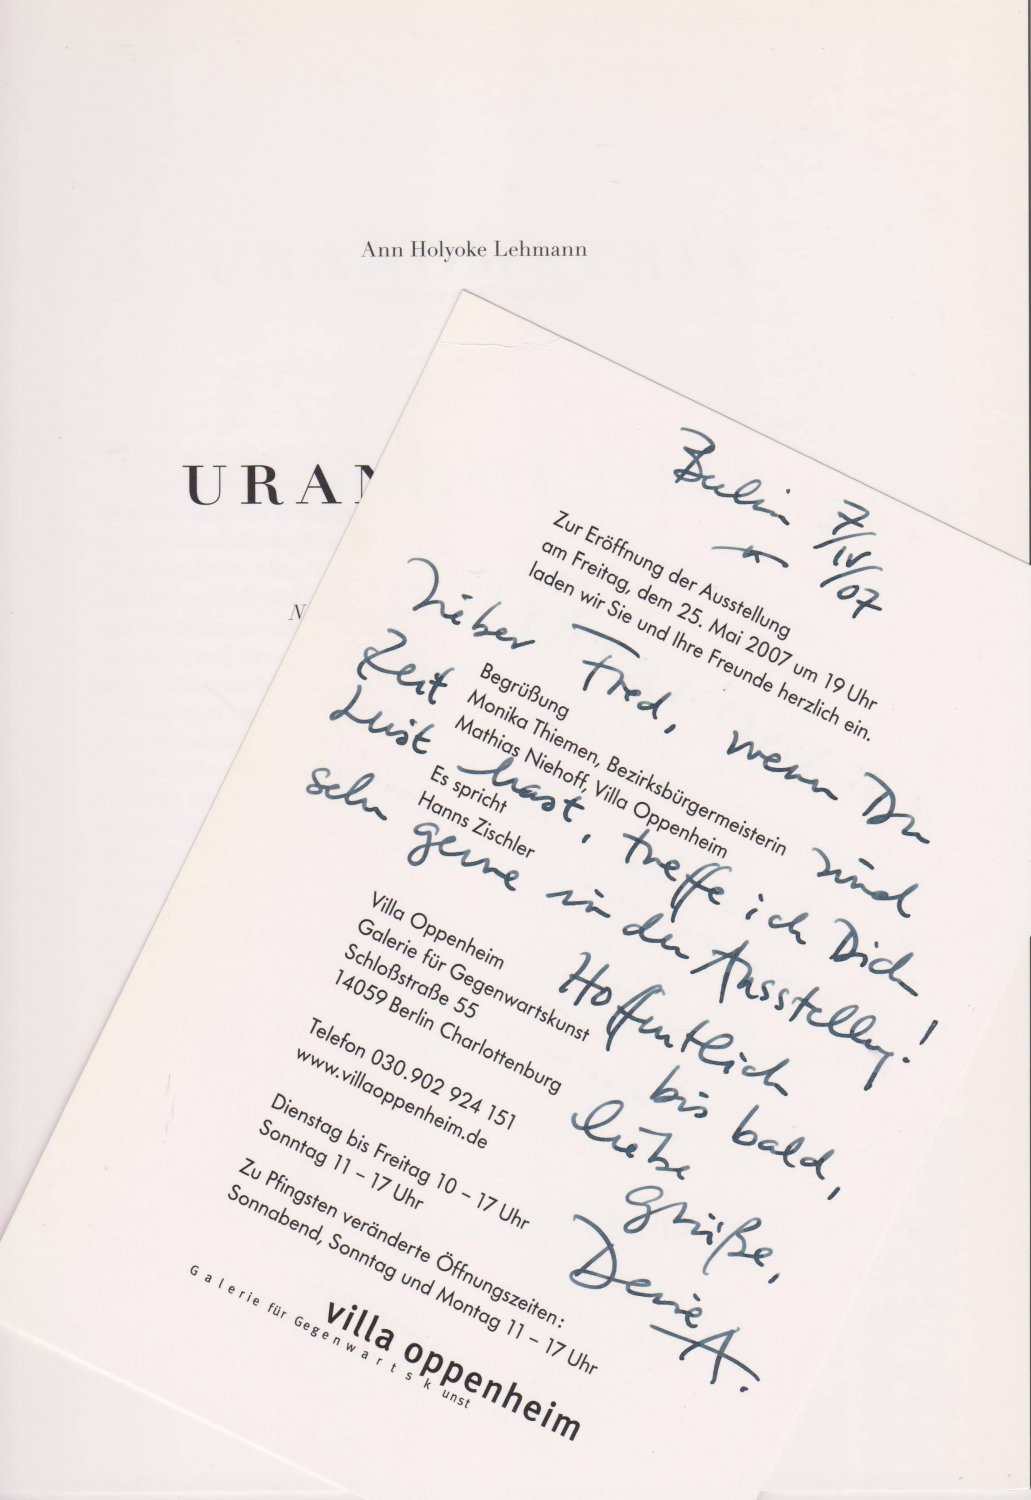 Ann Holyoke Lehmann
URAN
N
Berlin 7/IV/07
Zur Eröffnung der Ausstellung
am Freitag, dem 25. Mai 2007 um 19 Uhr
laden wir Sie und Ihre Freunde herzlich ein.
Lieber Fred, wenn Du
Zeit und
Lust hast, treffe ich Dich
sehr gerne in der Ausstellung!
Hoffentlich
bis bald,
liebe
Grüße,
Deine A.
Begrüßung
Monika Thiemen, Bezirksbürgermeisterin
Mathias Niehoff, Villa Oppenheim
Es spricht
Hanns Zischler
Villa Oppenheim
Galerie für Gegenwartskunst
Schloßstraße 55
14059 Berlin Charlottenburg
Telefon 030.902 924 151
www.villaoppenheim.de
Dienstag bis Freitag 10 – 17 Uhr
Sonntag 11 – 17 Uhr
Zu Pfingsten veränderte Öffnungszeiten:
Sonnabend, Sonntag und Montag 11 – 17 Uhr
villa oppenheim
Galerie für Gegenwartskunst